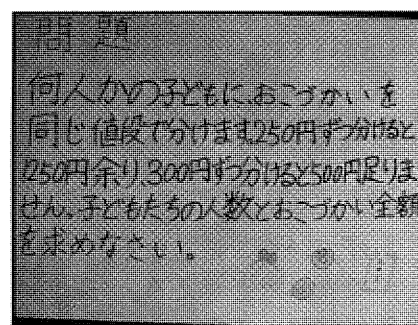 問題
何人かの子どもに、おこづかいを
同じ値段で分けます。250円ずつ分けると
250円余り、300円ずつ分けると500円足りま
せん。子どもたちの人数とおこづかい全額
を求めなさい。